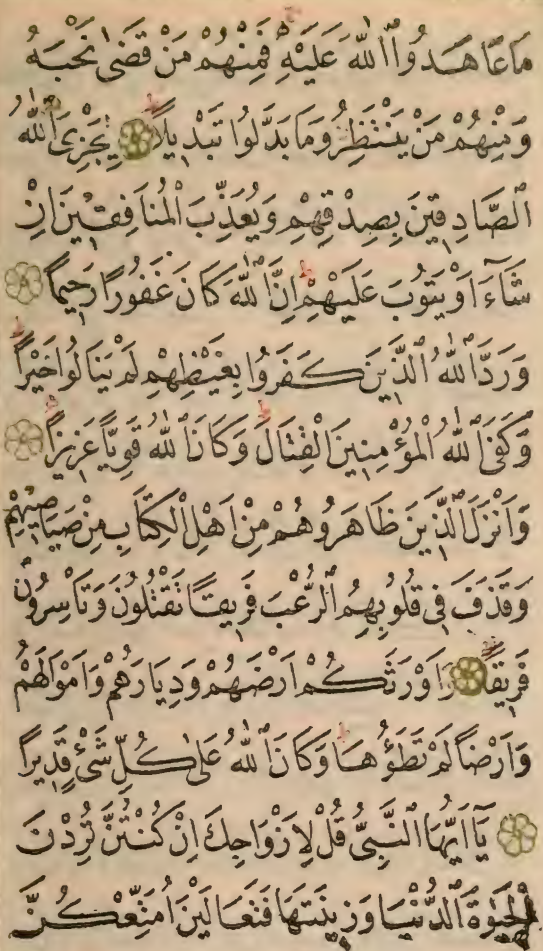 مَا عَاهَدُوا اللّٰهَ عَلَيْهِ فَمِنْهُمْ مَنْ قَضٰى نَحْبَهُ
وَمِنْهُمْ مَنْ يَنْتَظِرُ وَمَا بَدَّلُوا تَبْدِيلًا لِيَجْزِىَ اللّٰهُ
الصَّادِقِينَ بِصِدْقِهِمْ وَيُعَذِّبَ الْمُنَافِقِينَ اِنْ
شَآءَ اَوْ يَتُوبَ عَلَيْهِمْ اِنَّ اللّٰهَ كَانَ غَفُورًا رَحِيمًا
وَرَدَّ اللّٰهُ الَّذِينَ كَفَرُوا بِغَيْظِهِمْ لَمْ يَنَالُوا خَيْرًا
وَكَفَى اللّٰهُ الْمُؤْمِنِينَ الْقِتَالَ وَكَانَ اللّٰهُ قَوِيًّا عَزِيزًا
وَاَنْزَلَ الَّذِينَ ظَاهَرُوهُمْ مِنْ اَهْلِ الْكِتَابِ مِنْ صَيَاصِيهِمْ
وَقَذَفَ فِى قُلُوبِهِمُ الرُّعْبَ فَرِيقًا تَقْتُلُونَ وَتَأْسِرُونَ
فَرِيقًا وَاَوْرَثَكُمْ اَرْضَهُمْ وَدِيَارَهُمْ وَاَمْوَالَهُمْ
وَاَرْضًا لَمْ تَطَؤُهَا وَكَانَ اللّٰهُ عَلٰى كُلِّ شَىْءٍ قَدِيرًا
يَآ اَيُّهَا النَّبِىُّ قُلْ لِاَزْوَاجِكَ اِنْ كُنْتُنَّ تُرِدْنَ
الْحَيٰوةَ الدُّنْيَا وَزِينَتَهَا فَتَعَالَيْنَ اُمَتِّعْكُنَّ